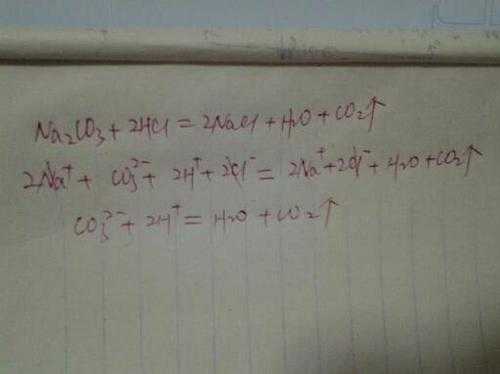 Na₂CO₃ + 2HCl = 2NaCl + H₂O + CO₂↑
2Na⁺ + CO₃²⁻ + 2H⁺ + 2Cl⁻ = 2Na⁺ + 2Cl⁻ + H₂O + CO₂↑
CO₃²⁻ + 2H⁺ = H₂O + CO₂↑